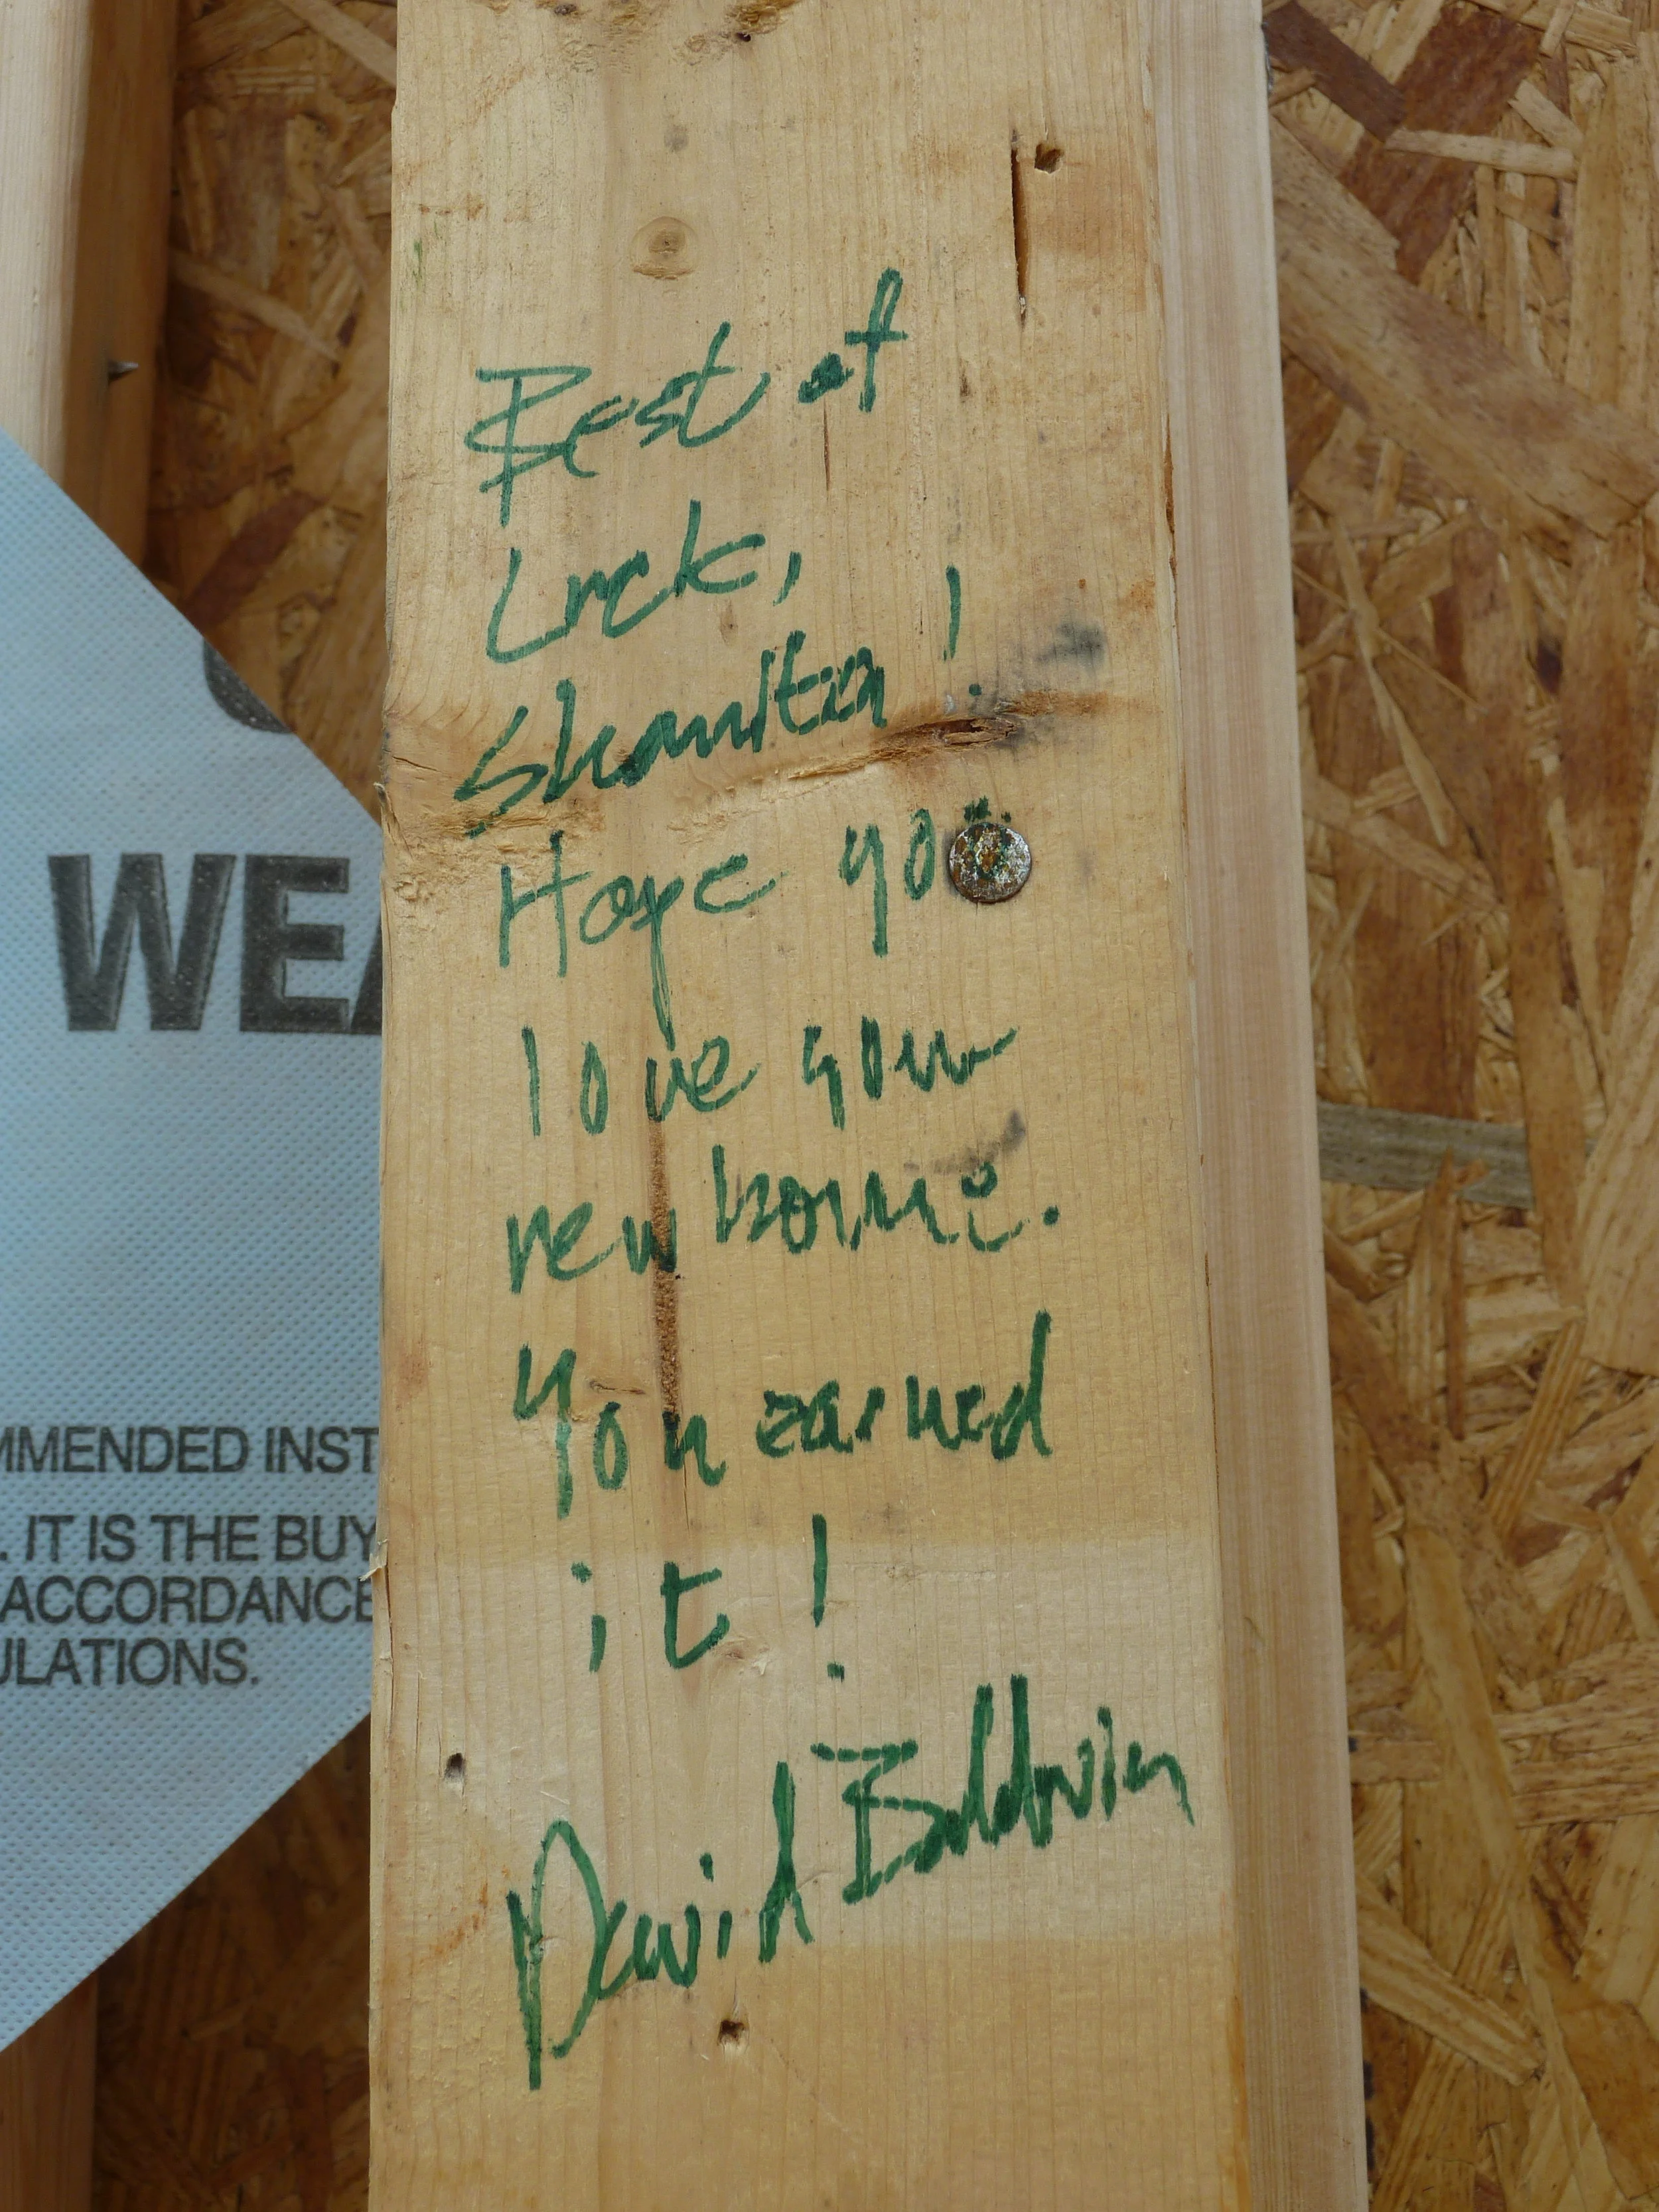 Best of
Luck,
Shanita!
Hope yo
love your
new home.
You earned
it!
David Baldwin
WEA
MMENDED INST
. IT IS THE BUY
ACCORDANCE
ULATIONS.